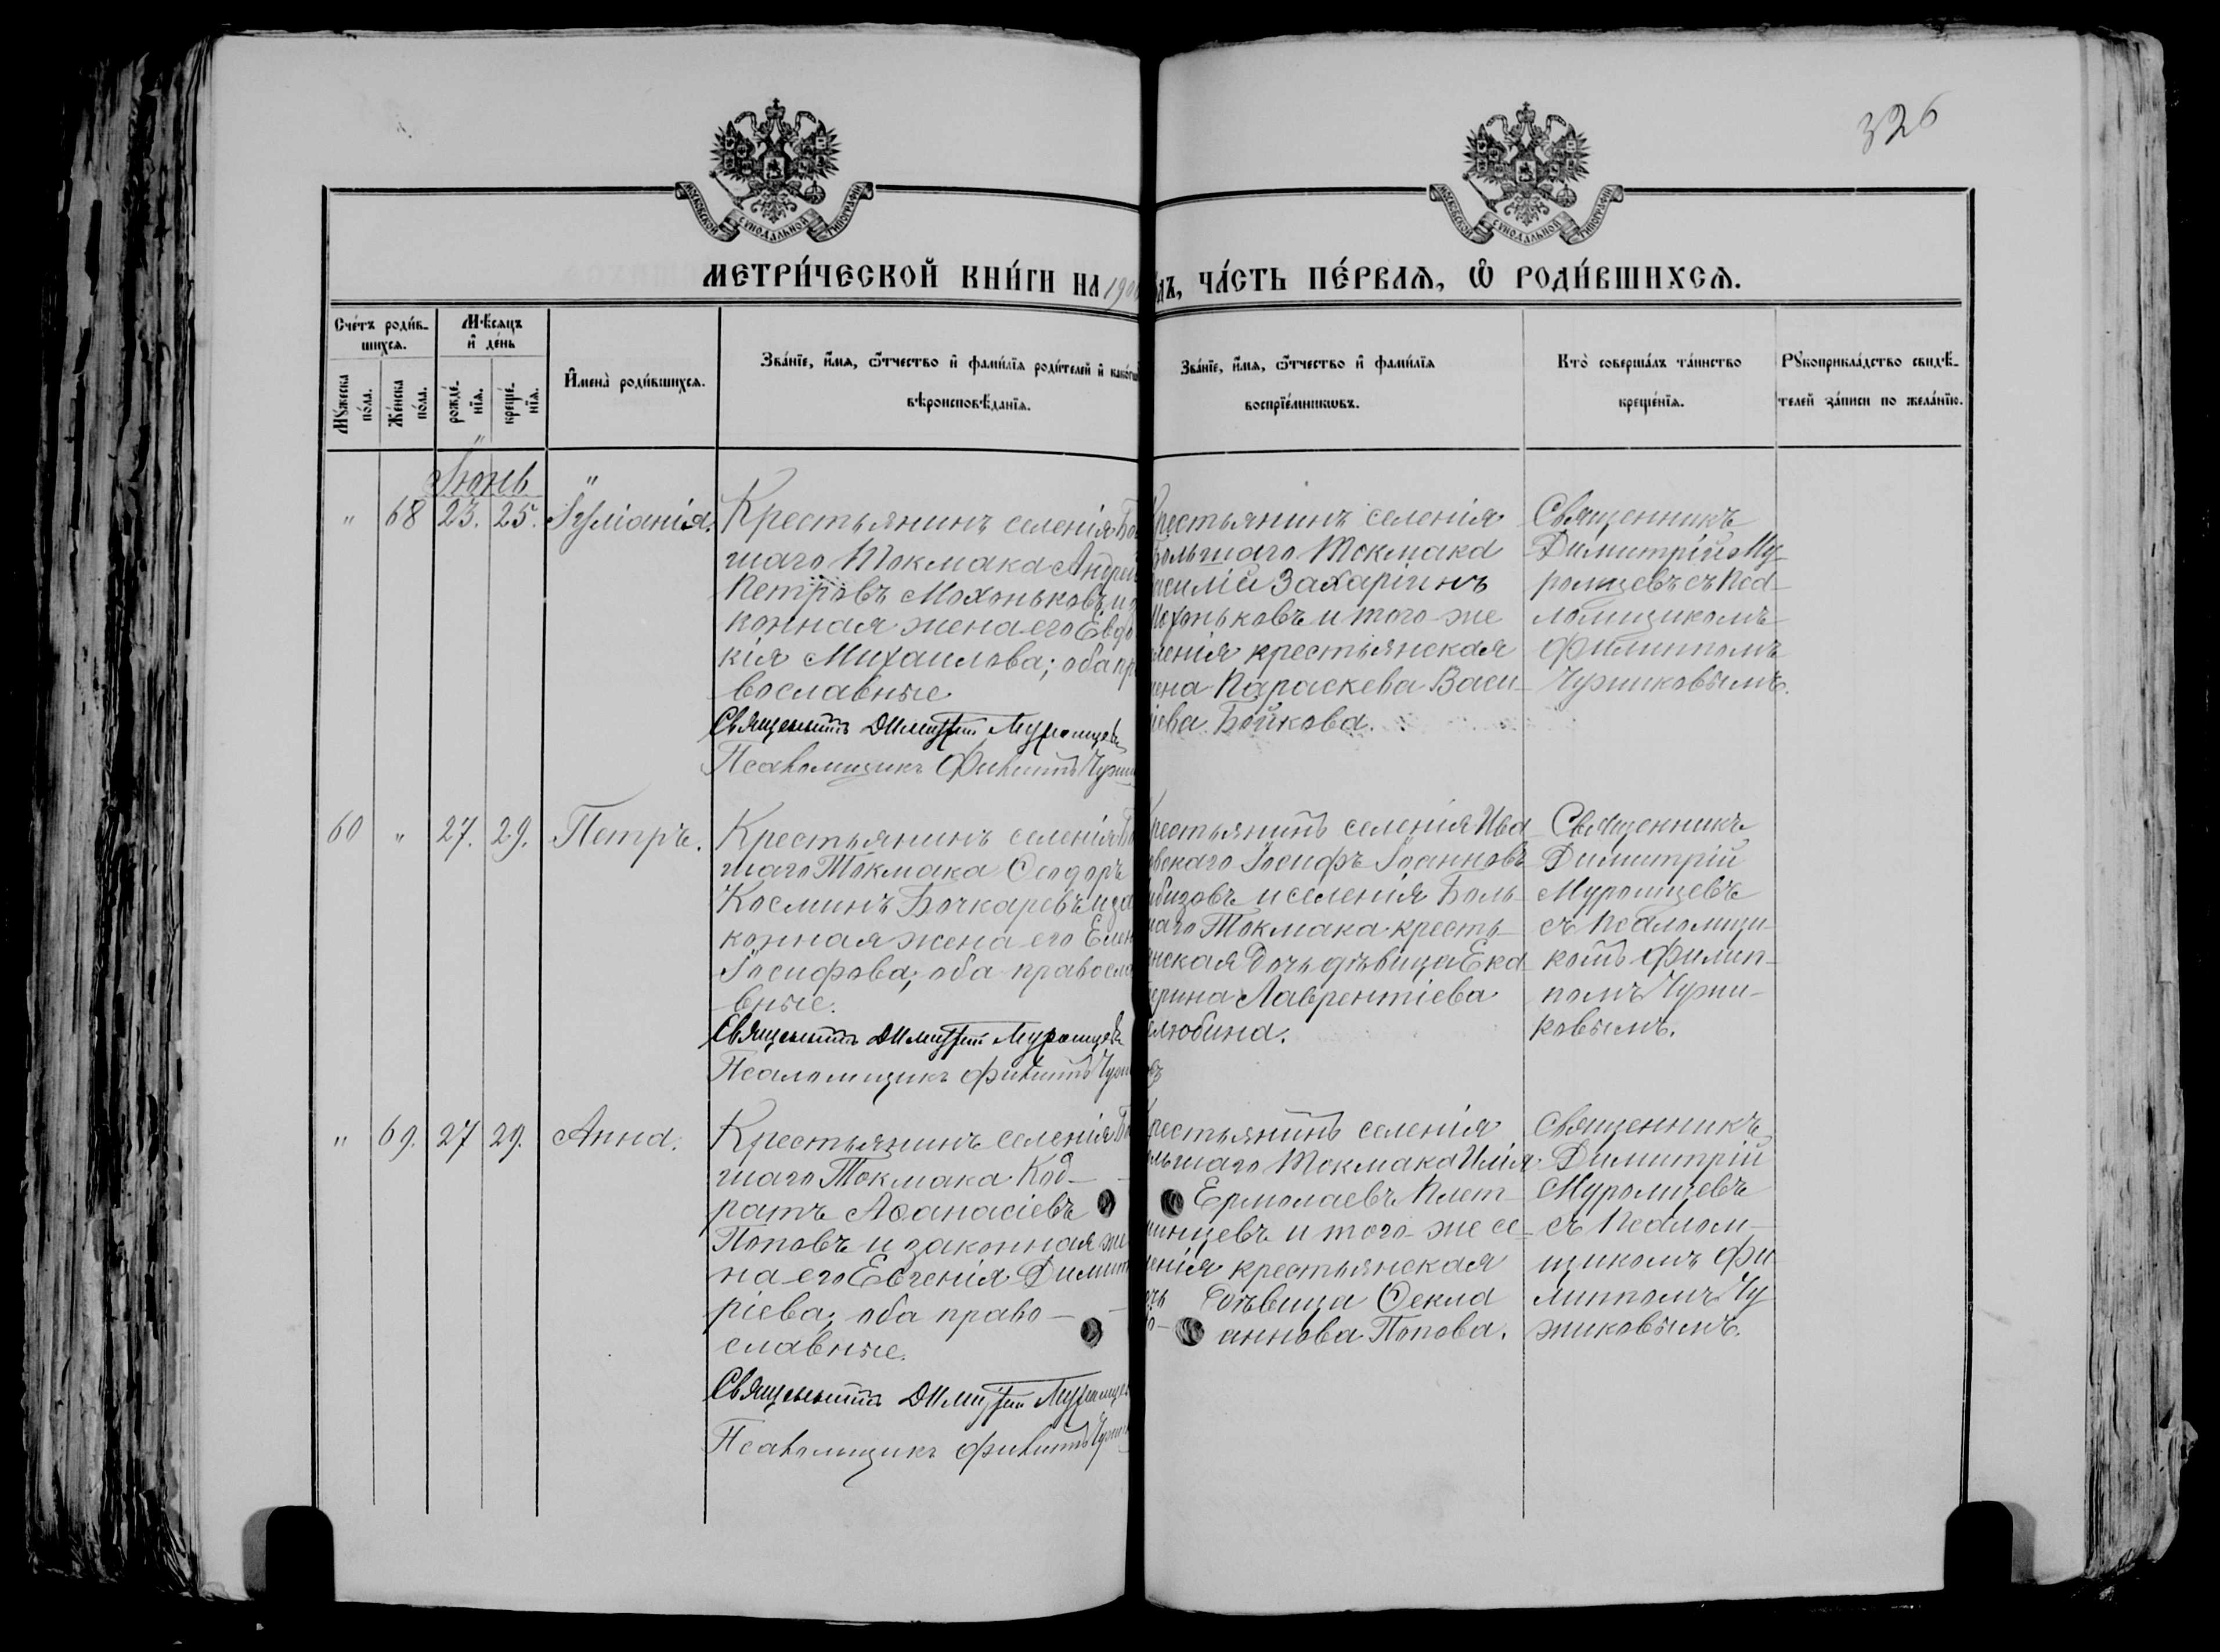 326
МОСКОВСКОЙ СУНОДАЛЬНОЙ ТИПОГРАФІИ
МОСКОВСКОЙ СУНОДАЛЬНОЙ ТИПОГРАФІИ
МЕТРИ́ЧЕСКОЙ КНИ́ГИ НА 190
ЧА́СТЬ ПЕ́РВАѦ, Ѡ҆ РОДИ́ВШИХСѦ.
Сче́тъ роди́в-
шихсѧ.
Мѣсѧцъ
и҆ де́нь
Мꙋжеска по́ла.
Же́нска по́ла.
рожде́-
нїѧ.
креще́-
нїѧ.
И҆мена̀ роди́вшихсѧ.
Зва́нїе, и҆́мѧ, ѻ҆́тчество и҆ фами́лїѧ роди́телей и҆
вѣроисповѣ́данїѧ.
Зва́нїе, и҆́мѧ, ѻ҆́тчество и҆ фами́лїѧ
воспрїе́мникѡвъ.
Кто̀ соверша́лъ та́инство
креще́нїѧ.
Рꙋкоприкла́дство свидѣ́-
телей за́писи по жела́нїю.
Іюнь
" 68 23. 25. Іуліанія.
Крестьянинъ селенія Бо
шаго Токмака Андрей
Петровъ Мохоньковъ и з
конная жена его Евдо
кія Михаилова; оба пр
вославные
Священникъ Димитрій Муромцевъ
Псаломщикъ Филиппъ Чужи
рестьянинъ селенія
Большаго Токмака
асилій Захаріинъ
Мохоньковъ и того же
ленія крестьянская
жена Параскева Васи-
ліева Бойкова.
Священникъ
Димитрій Му-
ромцевъ съ Пса-
ломщикомъ
Филиппомъ
Чужиковымъ.
60 " 27. 29. Петръ.
Крестьянинъ селенія Бо
шаго Токмака Ѳеодоръ
Косминъ Бочкаревъ и за
конная жена его Елен
Іосифова; оба правосла
вные.
Священникъ Димитрій Муромцевъ
Псаломщикъ Филиппъ Чужи
рестьянинъ селенія Ива
овскаго Іосифъ Іоанновъ
ибизовъ и селенія Боль-
шаго Токмака кресть-
янская дочь дѣвица Ека
ерина Лаврентіева
елюбина.
въ
Священникъ
Димитрій
Муромцевъ
съ Псаломщи-
комъ Филип-
помъ Чужи-
ковымъ.
" 69. 27 29. Анна.
Крестьянинъ селенія Бо
шаго Токмака Код-
ратъ Аѳанасіевъ
Поповъ и законная же
на его Евгенія Димит
ріева; оба право-
славные.
Священникъ Димитрій Муромцевъ
Псаломщикъ Филиппъ Чужи
рестьянинъ селенія
льшаго Токмака Илія
Ермолаевъ Плет
минцевъ и того-же се-
ленія крестьянская
очь дѣвица Ѳекла
аннова Попова.
Священникъ
Димитрій
Муромцевъ
съ Псалом-
щикомъ Фи
липпомъ Чу
жиковымъ.